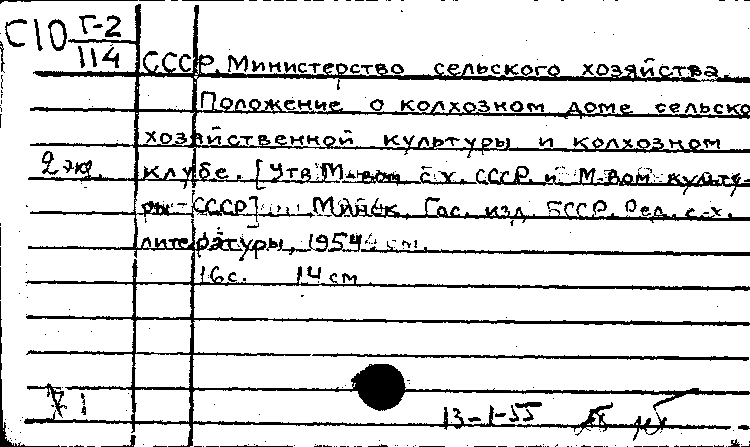 С10 Г-2
114
СССР. Министерство сельского хозяйства.
Положение о колхозном доме сельско
хозяйственной культуры и колхозном
2 экз. клубе. [Утв М-вом с.х. СССР и М-вом культу-
ры СССР] Минск, Гос. изд. БССР. Ред. с.-х.
литературы, 1954
16 с. 14 см.
1
13-1-55